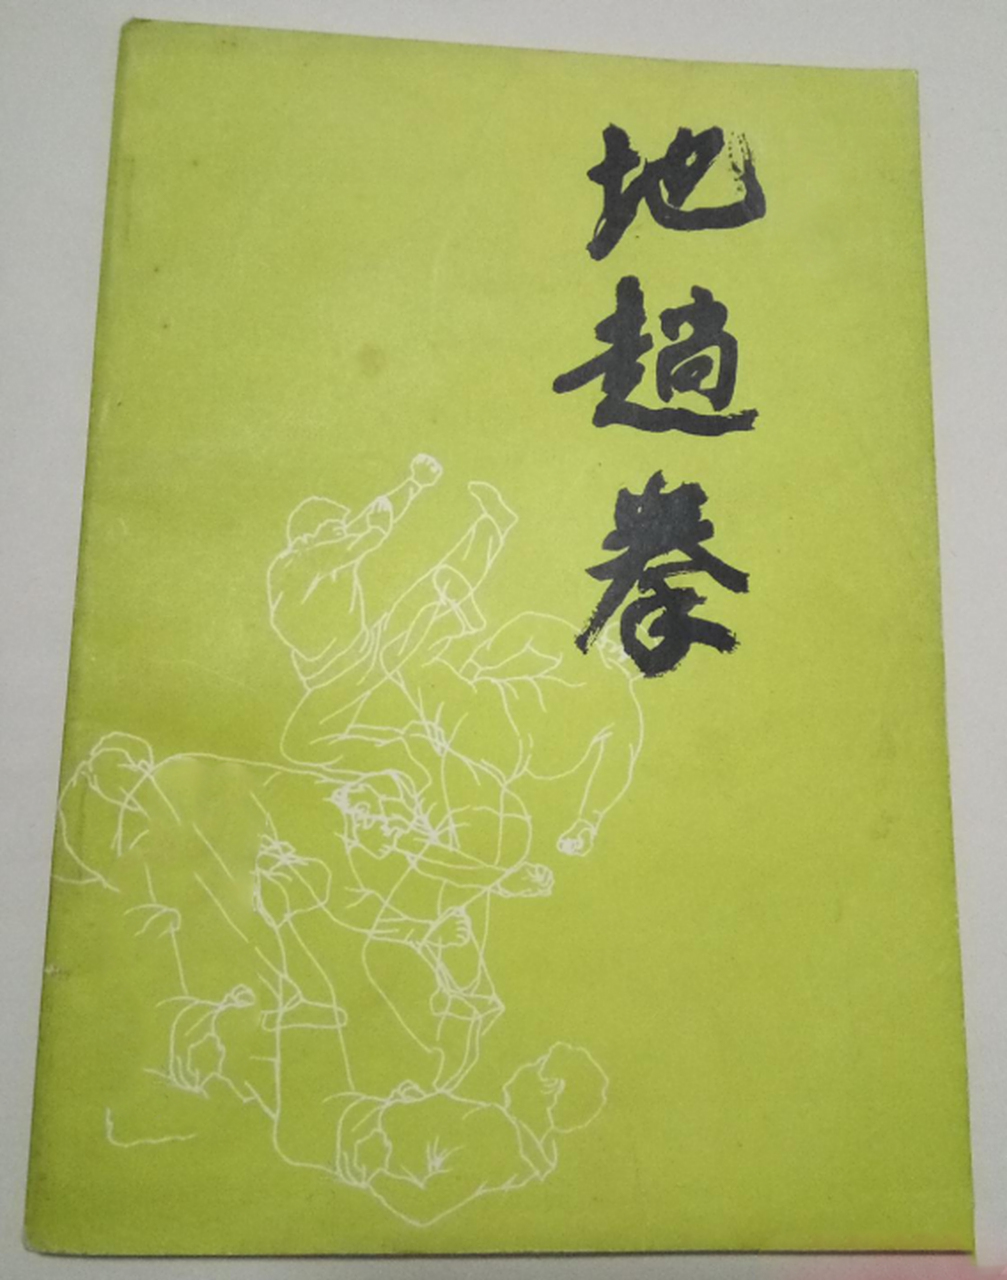 地趟拳